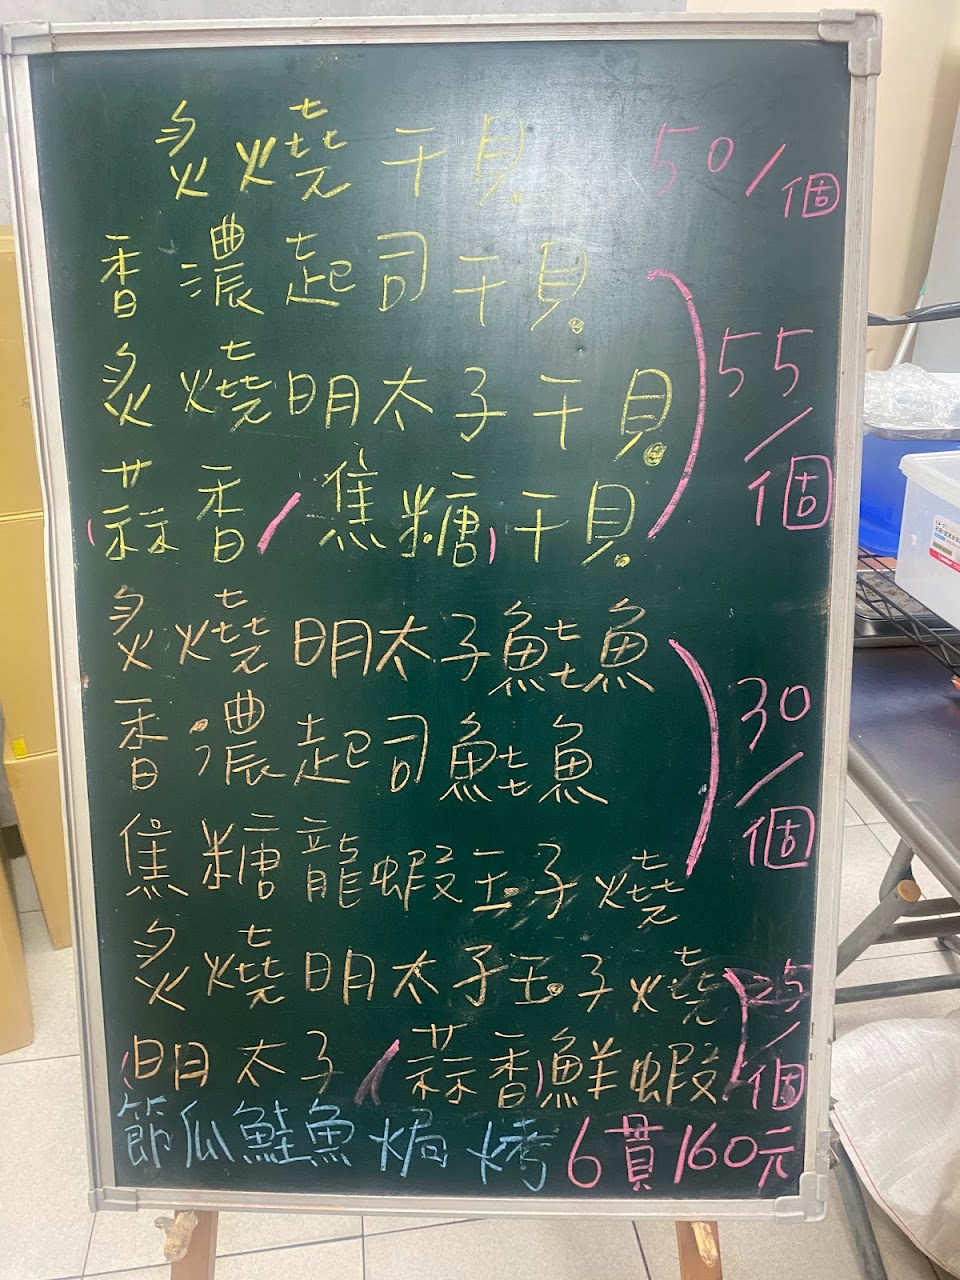 炙燒干貝 50/個
香濃起司干貝
炙燒明太子干貝 55/個
(蒜香/焦糖)干貝
炙燒明太子鮭魚
香濃起司鮭魚 30/個
焦糖龍蝦玉子燒
炙燒明太子玉子燒 25/個
(明太子/蒜香)鮮蝦
節瓜鮭魚焗烤 6貫160元